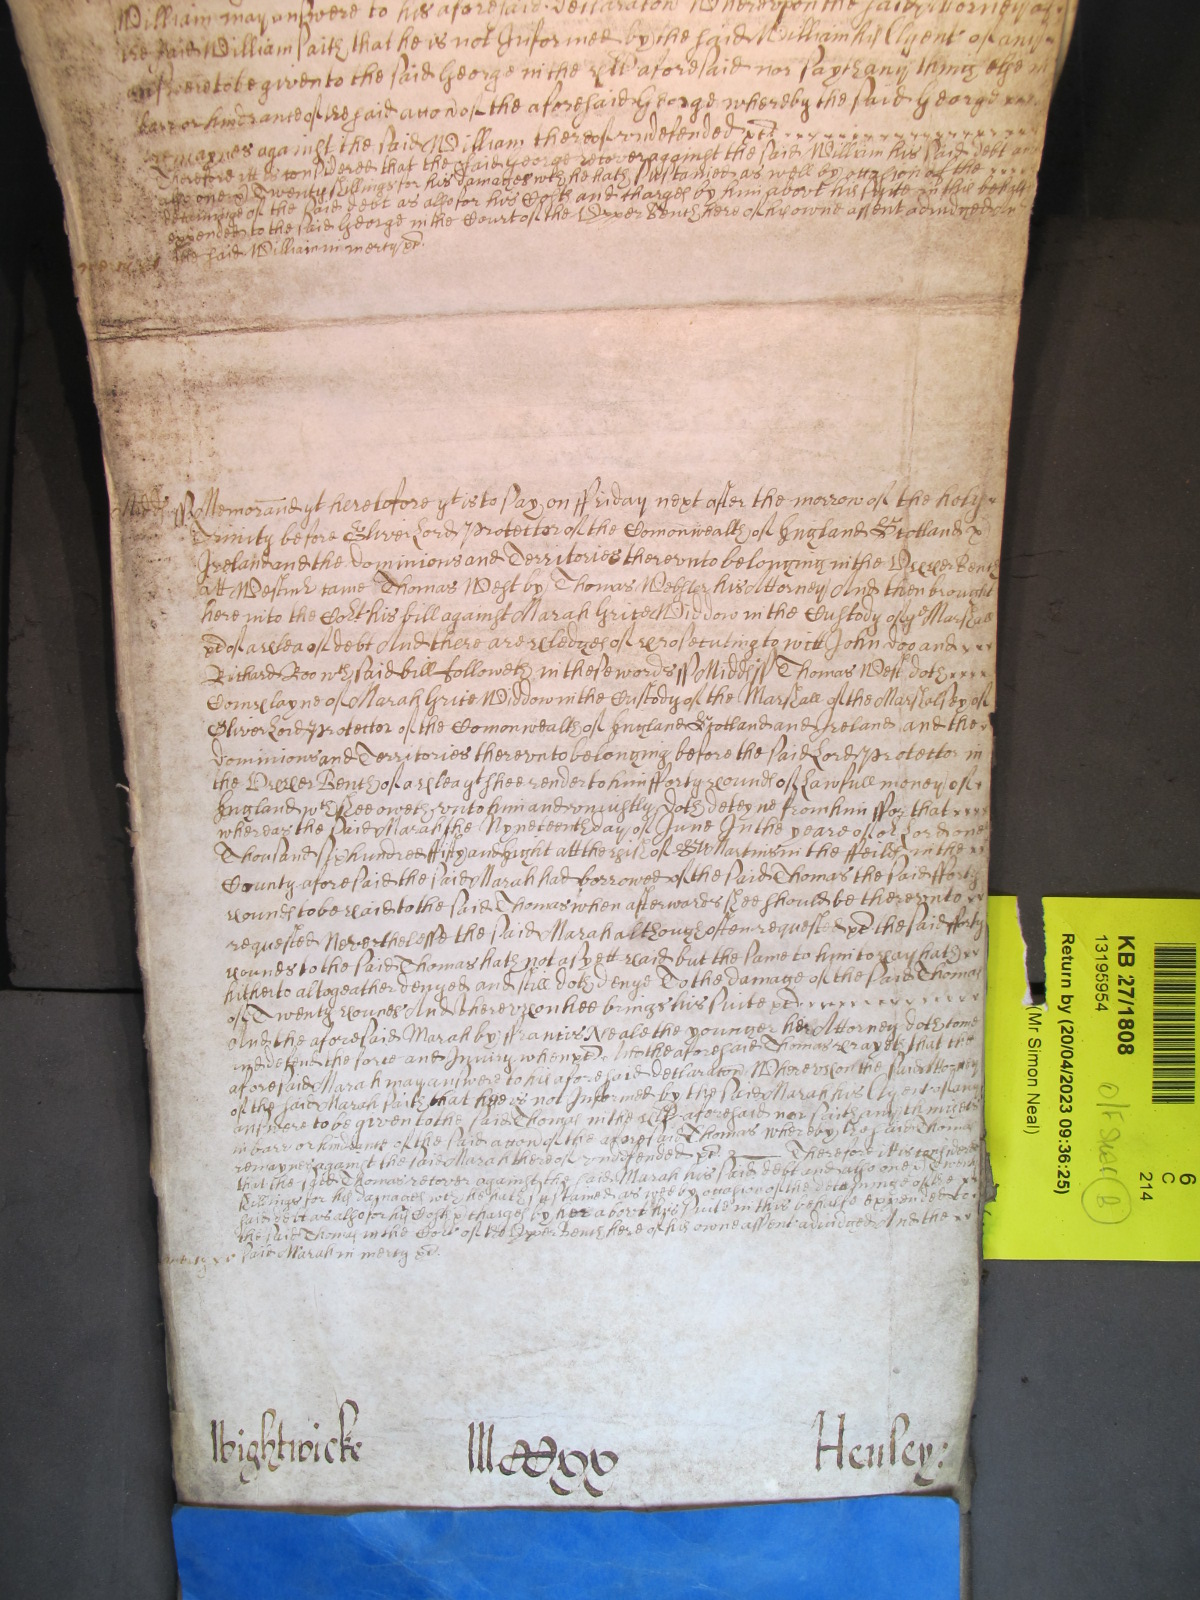 William may answere to his aforesaid declaraton Whereupon the said Attorney of
the said William saith that he is not Informed by the said William his Clyent of any
answere to be given to the said George in the aforesaid nor sayth any thing else in
barr or hindrance of the said accon of the aforesaid George whereby the said George
remaynes against the said William thereof undefended &c
Therefore itt is considered that the said George recover against the said William his said debt and
alsoe one & Twenty shillings for his damages wch he hath sustained as well by occasion of the
deteininge of the said debt as alsoe for his Costs and charges by him about his suite in this behalfe
expended to the said George in the Court of the Upper Bench here of his owne assent adiudged And
the said William in mercy &c
Midd ss Memorand yt heretofore yt is to say on ffriday next after the morrow of the holy
Trinity before Oliver Lord Protector of the Comonwealth of England Scotland &
Ireland and the dominions and Territories thereunto belonging in the Upper Bench
att Westmr came Thomas West by Thomas Webster his Attorney And then brought
here into the Cort his bill against Marah Grice Widdow in the Custody of ye Marshall
&c of a plea of debt And there are pledges of prosecuting to witt John doo and
Richard Roo wch said bill followeth in these words ss Midd ss Thomas West doth
Complayne of Marah Grice Widdow in the Custody of the Marshall of the Marshalsey of
Oliver Lord Protector of the Comonwealth of England Scotland and Ireland and the
dominions and Territories thereunto belonging before the said Lord Protector in
the Upper Bench of a plea yt shee render to him fforty pounds of Lawfull money of
England wch shee oweth unto him and uniustly doth deteyne from him ffor that
whereas the said Marah the Nyneteenth day of June In the yeare of or Lord one
Thousand six hundred fifty and eight att the pish of St Martins in the ffeilds in the
County aforesaid the said Marah had borrowed of the said Thomas the said fforty
pounds to be paid to the said Thomas when afterwards shee should be thereunto
requested Neverthelesse the said Marah although often requested &c the said fforty
pounds to the said Thomas hath not as yett paid but the same to him to pay hath
hitherto altogeather denyed and still doth denye To the damage of the said Thomas
of Twenty pounds And thereupon hee brings his suite &c
And the aforesaid Marah by ffrancis Neale the younger her Attorney doth come
and defend the force and Iniury when &c And the aforesaid Thomas prayeth that the
aforesaid Marah may answere to his aforesaid declaraton Whereupon the said Attorney
of the said Marah saith that hee is not Informed by the said Marah his Clyent of any
answere to be given to the said Thomas in the aforesaid nor saith anything else
in barr or hindrance of the said accon of the aforesaid Thomas whereby the said Thomas
remaynes against the said Marah thereof undefended &c Therefore itt is considered
that the said Thomas recover against the said Marah his said debt and alsoe one & Twenty
shillings for his damages wch he hath sustained as well by occasion of the deteininge of the
said debt as alsoe for his Costs & charges by her about his suite in this behalfe expended to
the said Thomas in the Cort of the Upper Bench here of his owne assent adiudged And the
mercy said Marah in mercy &c
Wightwicke Henley:
6
C
214
KB 27/1808
13195954
Return by (20/04/2023 09:36:25)
(Mr Simon Neal)